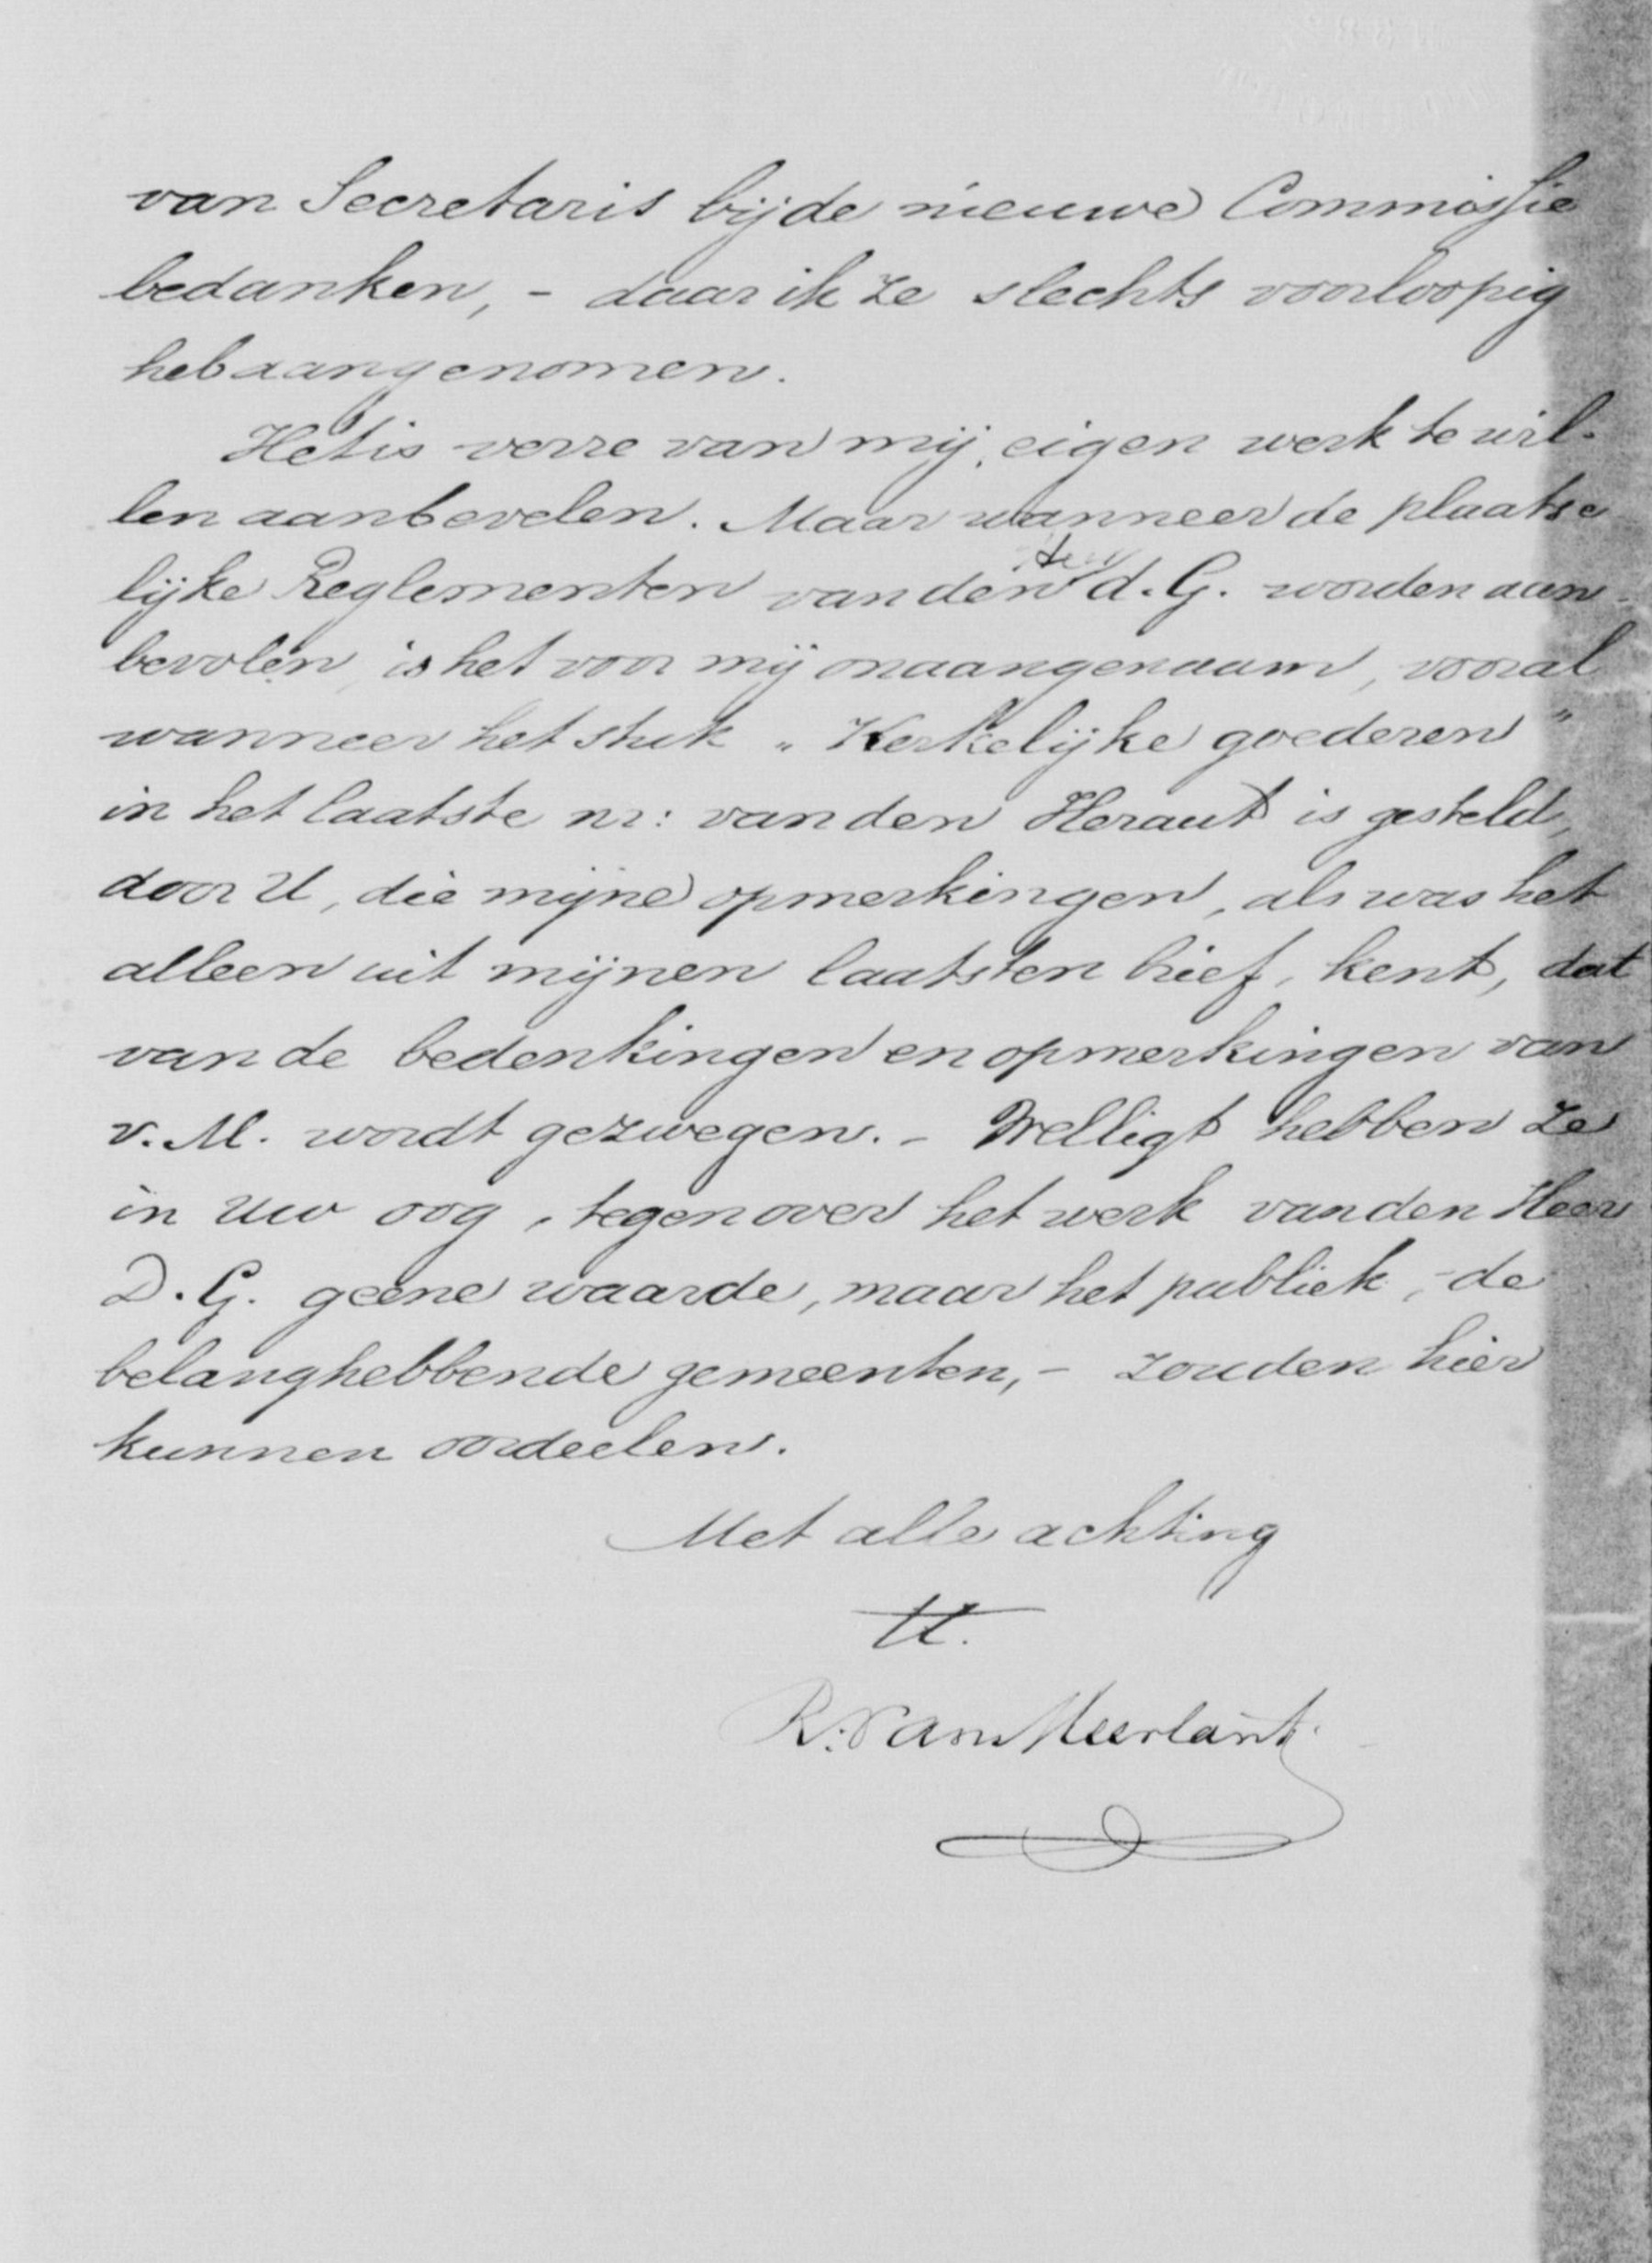 van Secretaris bij de nieuwe Commissie
bedanken, - daar ik ze slechts voorloopig
heb aangenomen.
Het is verre van mij, eigen werk te wil-
len aanbevelen. Maar wanneer de plaatse
lijke Reglementen van den d. G. worden aan-
bevolen, is het voor mij onaangenaam, vooral
wanneer het stuk „Kerkelijke goederen"
in het laatste nr: van den Heraut is gesteld,
door U, die mijne opmerkingen, als was het
alleen uit mijnen laatsten brief, kent, dat
van de bedenkingen en opmerkingen van
v. M. wordt gezwegen. - Welligt hebben ze
in Uw oog, tegenover het werk van den Heer
D. G. geene waarde, maar het publiek, - de
belanghebbende gemeenten, - zouden hier
kunnen oordeelen.
Met alle achting
tt.
R. van Meerlant